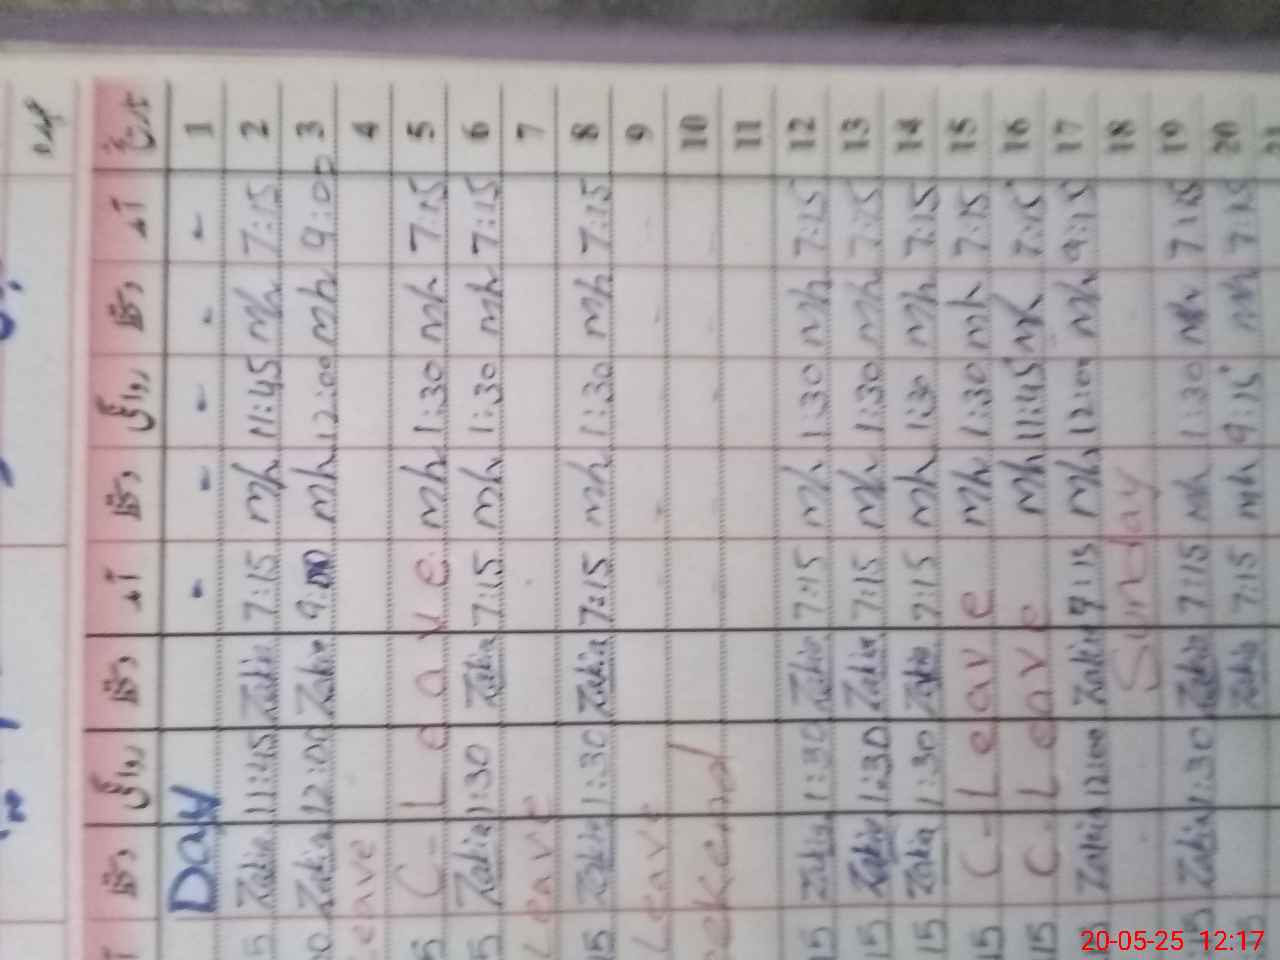 تاریخ آمد دستخط روانگی دستخط آمد دستخط روانگی دستخط
Day - - - - - 1
Zakia 11:45 Zakia 7:15 mh 11:45 mh 7:15 2
Zakia 12:00 Zakia 9:00 mh 12:00 mh 9:00 3
eave 4
C-Leave mh 1:30 mh 7:15 5
Zakia 1:30 Zakia 7:15 mh 1:30 mh 7:15 6
Leave 7
15 Zakia 1:30 Zakia 7:15 mh 1:30 mh 7:15 8
Leave 9
eekend 10
11
15 Zakia 1:30 Zakia 7:15 mh 1:30 mh 7:15 12
15 Zakia 1:30 Zakia 7:15 mh 1:30 mh 7:15 13
15 Zakia 1:30 Zakia 7:15 mh 1:30 mh 7:15 14
15 C-Leave mh 1:30 mh 7:15 15
15 C-Leave mh 11:45 mh 7:15 16
15 Zakia 12:00 Zakia 9:15 mh 12:00 mh 9:15 17
Sunday 18
15 Zakia 1:30 Zakia 7:15 mh 1:30 mh 7:15 19
15 Zakia 7:15 mh 9:15 mh 7:15 20
21
20-05-25 12:17